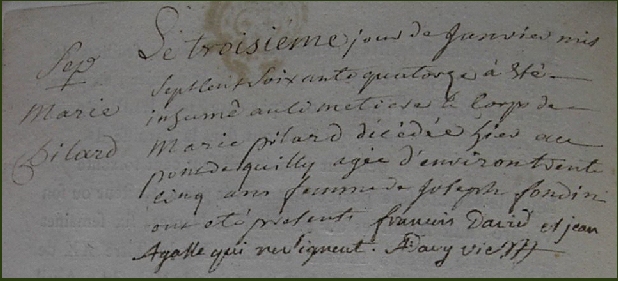 Sep
Marie
Pilard
Le troisiéme jour de Janvier mis
sept cent soixante quatorze à été
inhumé au cimetiere le Corps de
Marie pilard décédée hier au
pont de quilly agée d'environ trente
cinq ans femme de Joseph fondin
ont eté present francois David et jean
Agasse qui ne signent. Davy vic